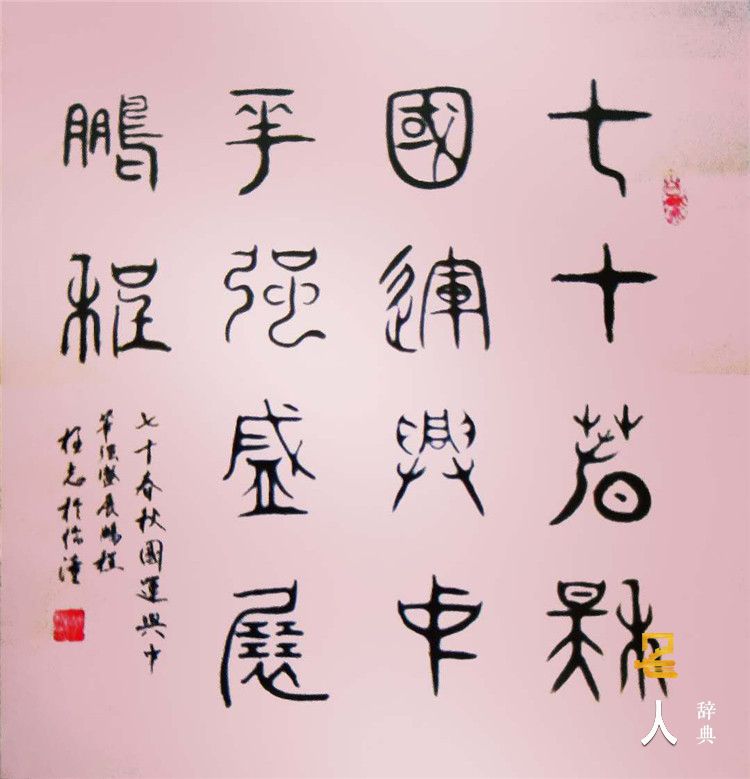 七十春秋
國運興中
華强盛展
鵬程
七十春秋國運興中
華强盛展鵬程
名人
辞典